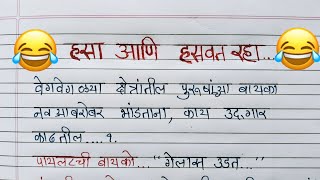 हसा आणि हसवत रहा...
वेगवेगळ्या क्षेत्रांतील पुरूषांच्या बायका
नवऱ्याबरोबर भांडताना, काय उद्गार
काढतील.... १.
पायलटची बायको... "गेलात उडत..."